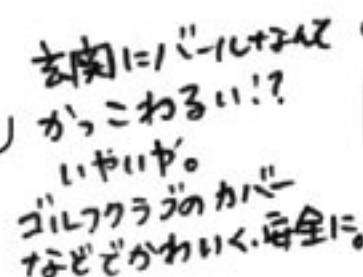 玄関にバールなんて
かっこわるい!?
いやいや。
ゴルフクラブのカバー
などでかわいく、安全に。